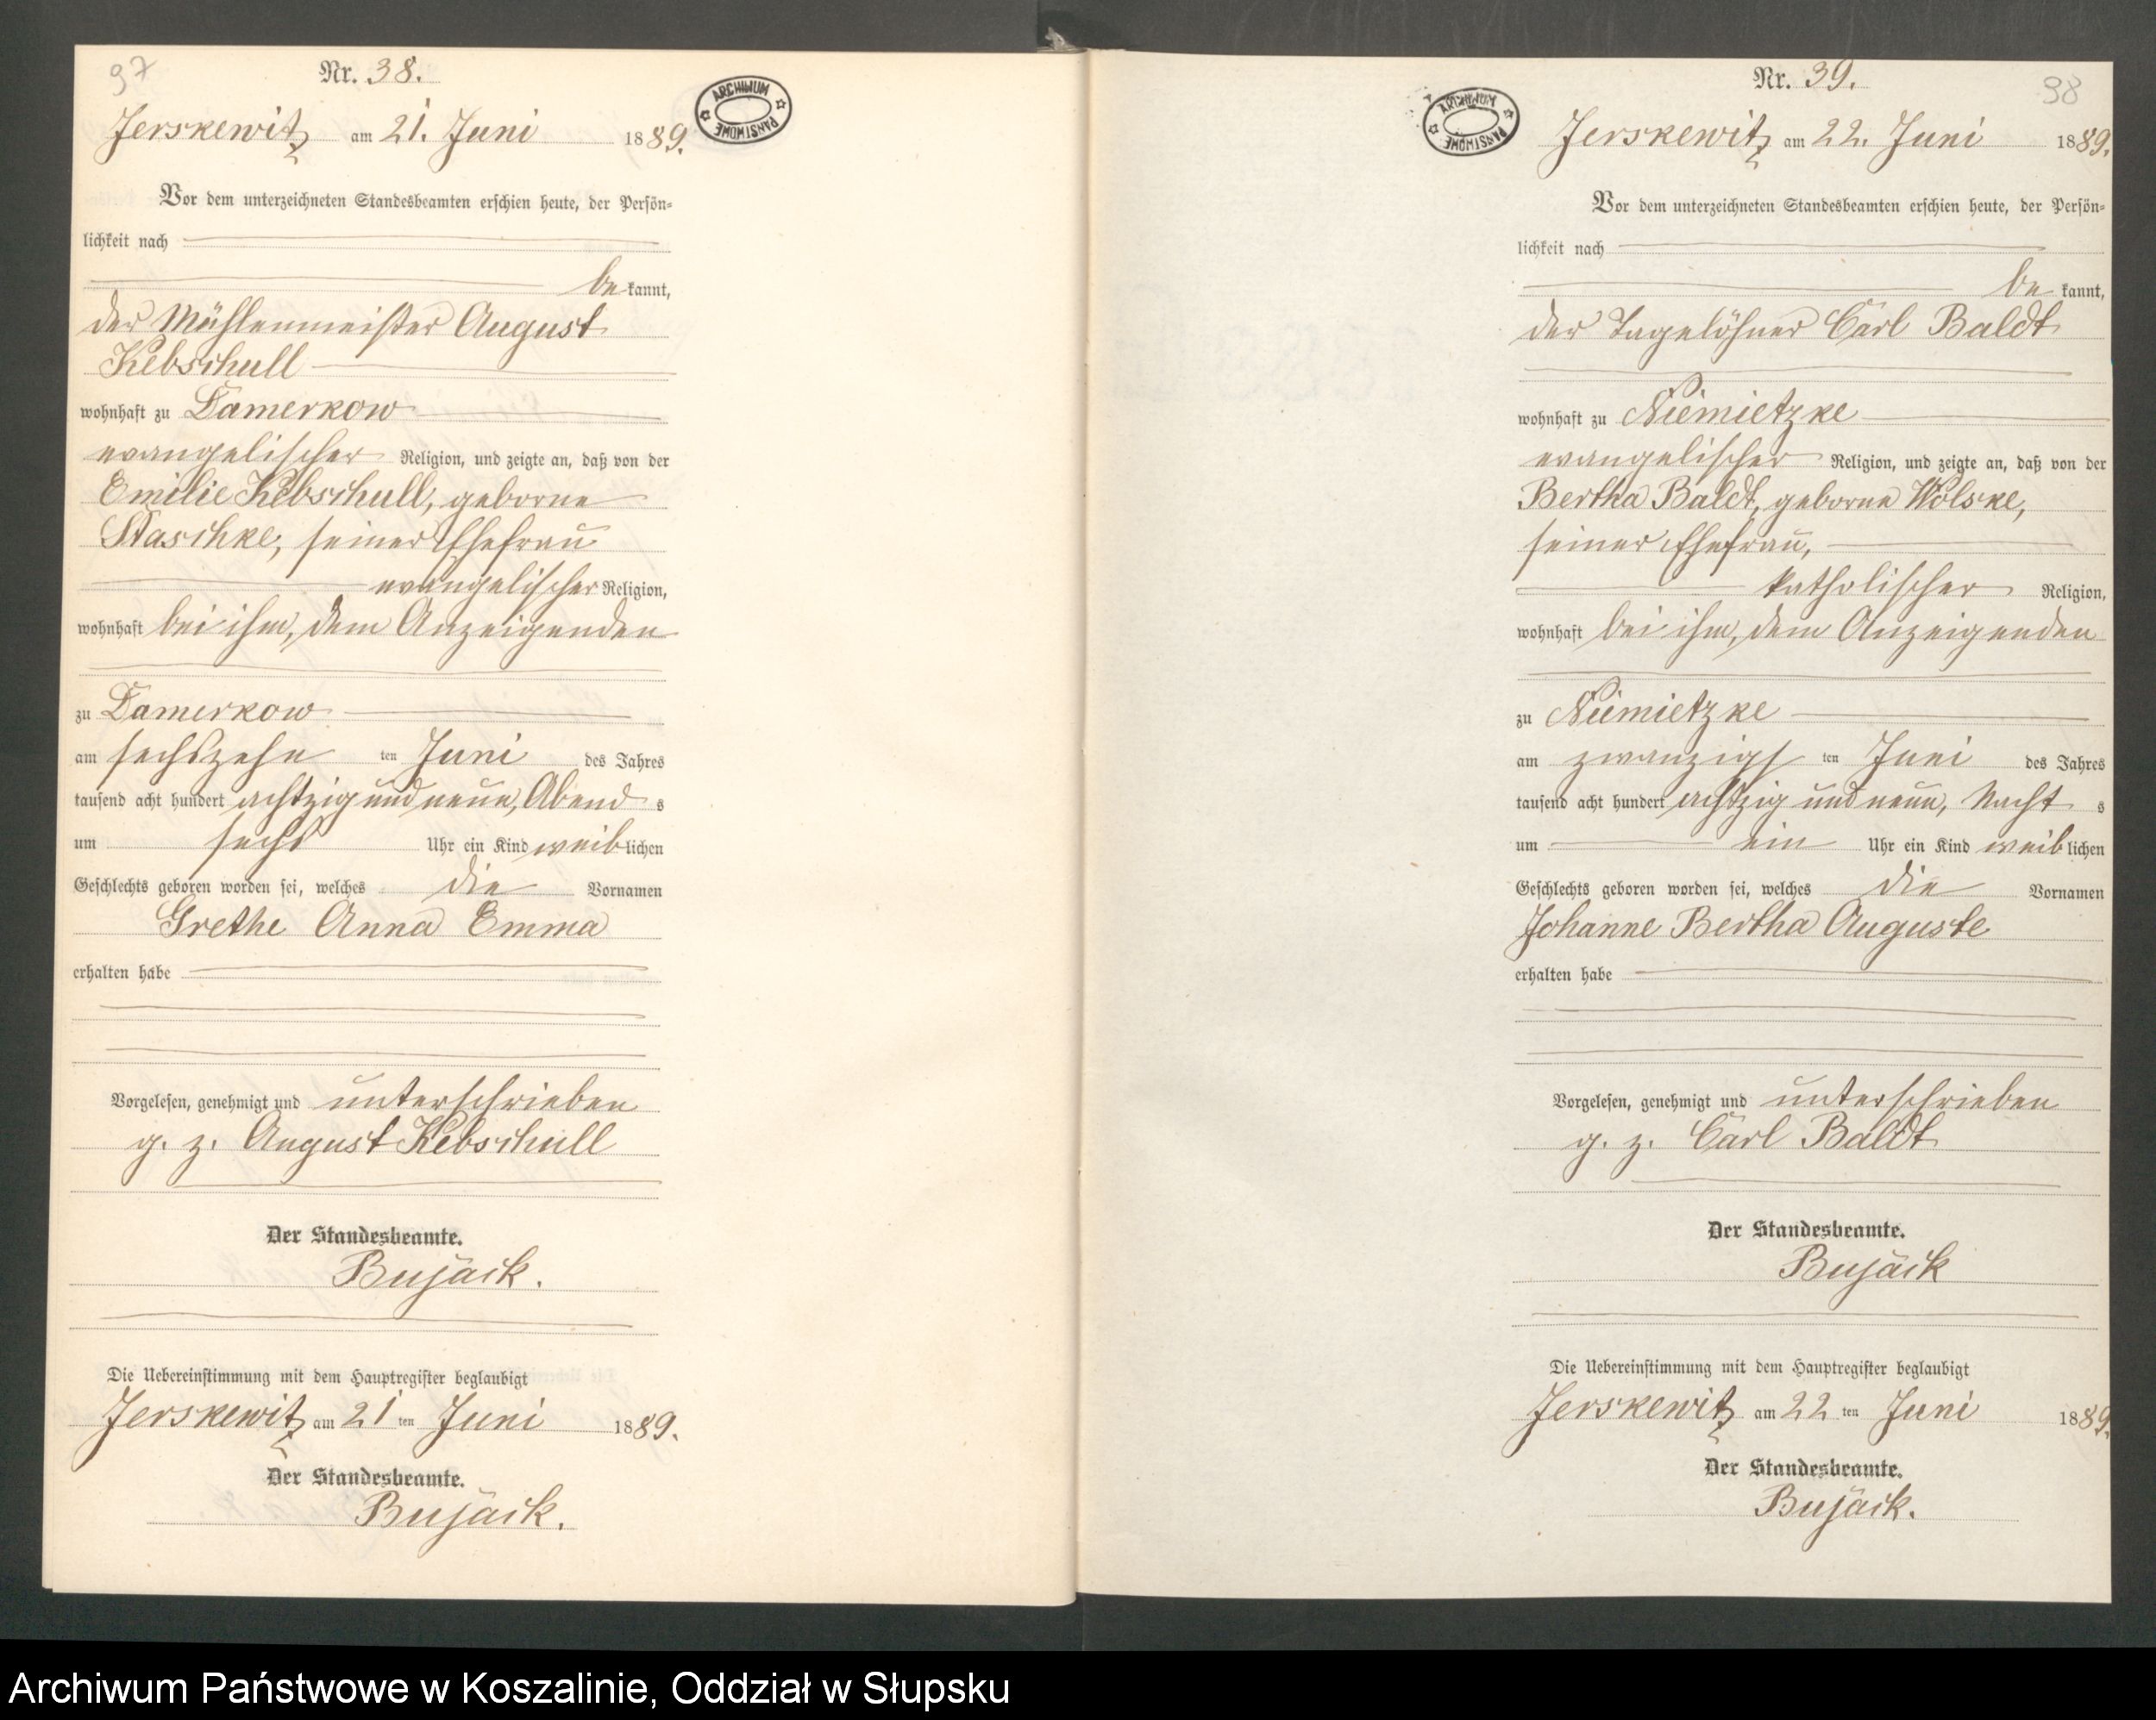 97
Nr. 38.
ARCHIWUM PAŃSTWOWE
Jerskewitz am 21. Juni 1889.
Vor dem unterzeichneten Standesbeamten erschien heute, der Persön-
lichkeit nach
be kannt,
der Mühlenmeister August
Kebschull
wohnhaft zu Damerkow
evangelischer Religion, und zeigte an, daß von der
Emilie Kebschull, geborne
Staschke, seiner Ehefrau
evangelischer Religion,
wohnhaft bei ihm, dem Anzeigenden
zu Damerkow
am sechszehn ten Juni des Jahres
tausend acht hundert achtzig und neun, Abend s
um sechs Uhr ein Kind weiblichen
Geschlechts geboren worden sei, welches die Vornamen
Grethe Anna Emma
erhalten habe
Vorgelesen, genehmigt und unterschrieben
g. z. August Kebschull
Der Standesbeamte.
Bujack.
Die Uebereinstimmung mit dem Hauptregister beglaubigt
Jerskewitz am 21 ten Juni 1889.
Der Standesbeamte.
Bujack.
98
Nr. 39.
ARCHIWUM PAŃSTWOWE
Jerskewitz am 22. Juni 1889.
Vor dem unterzeichneten Standesbeamten erschien heute, der Persön-
lichkeit nach
be kannt,
der Tagelöhner Carl Baldt
wohnhaft zu Niemietzke
evangelischer Religion, und zeigte an, daß von der
Bertha Baldt, geborne Wolske,
seiner Ehefrau,
katholischer Religion,
wohnhaft bei ihm, dem Anzeigenden
zu Niemietzke
am zwanzigs ten Juni des Jahres
tausend acht hundert achtzig und neun, Nacht s
um ein Uhr ein Kind weiblichen
Geschlechts geboren worden sei, welches die Vornamen
Johanne Bertha Auguste
erhalten habe
Vorgelesen, genehmigt und unterschrieben
g. z. Carl Baldt
Der Standesbeamte.
Bujack
Die Uebereinstimmung mit dem Hauptregister beglaubigt
Jerskewitz am 22 ten Juni 1889.
Der Standesbeamte.
Bujack.
Archiwum Państwowe w Koszalinie, Oddział w Słupsku